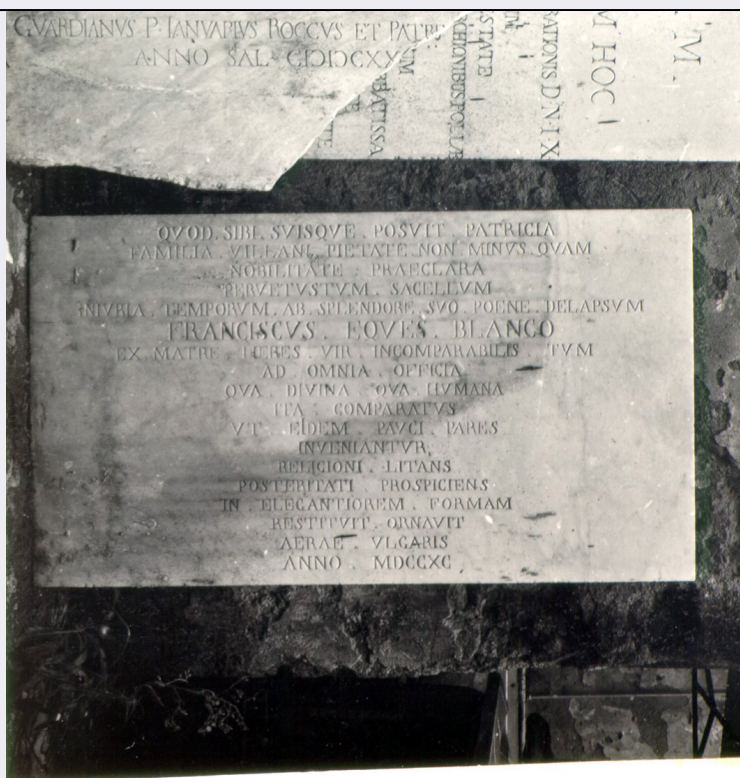 GVARDIANVS P. IANVARIVS ROCCVS ET PATRE
ANNO SAL. CIƆIƆCXX
STATE
RATIONIS D.V.I.X
M HOC
M.
RBATISSA
QVOD. SIBI. SVISQVE. POSVIT. PATRICIA
FAMILIA. VILLANI. PIETATE. NON MINVS. QVAM
NOBILITATE. PRAECLARA
PERVETVSTVM. SACELLVM
INIVRIA. TEMPORVM. AB. SPLENDORE. SVO. POENE. DELAPSVM
FRANCISCVS. EQVES. BLANCO
EX. MATRE. HERES. VIR. INCOMPARABILIS. TVM
AD. OMNIA. OFFICIA
QVA. DIVINA. QVA. HVMANA
ITA. COMPARATVS
VT. EIDEM. PAVCI. PARES
INVENIANTVR,
RELIGIONI. LITANS
POSTERITATI. PROSPICIENS
IN. ELEGANTIOREM. FORMAM
RESTITVIT. ORNAVIT
AERAE. VLGARIS
ANNO. MDCCXC